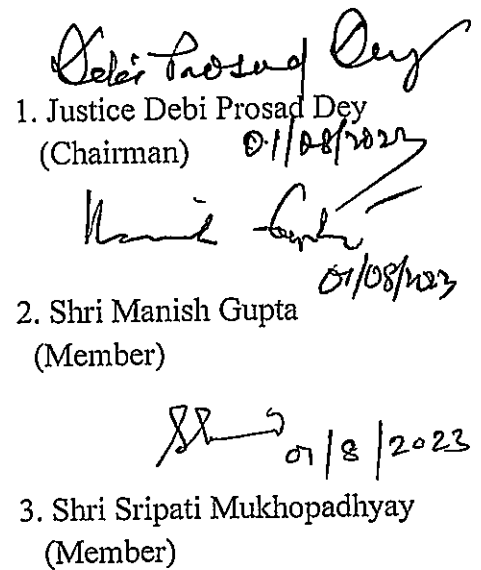 Debi Prosad Dey
1. Justice Debi Prosad Dey
(Chairman) 01/08/2023
Manish Gupta
01/08/2023
2. Shri Manish Gupta
(Member)
01/8/2023
3. Shri Sripati Mukhopadhyay
(Member)